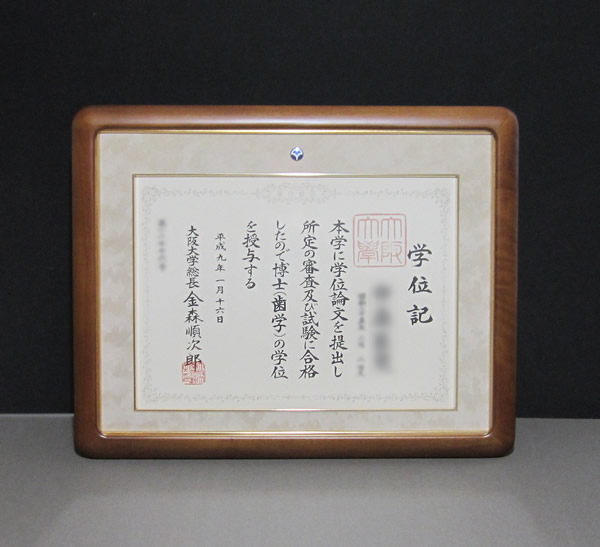 学位記
大阪大学
本学に学位論文を提出し
所定の審査及び試験に合格
したので博士(歯学)の学位
を授与する
平成九年一月十六日
大阪大学総長 金森順次郎